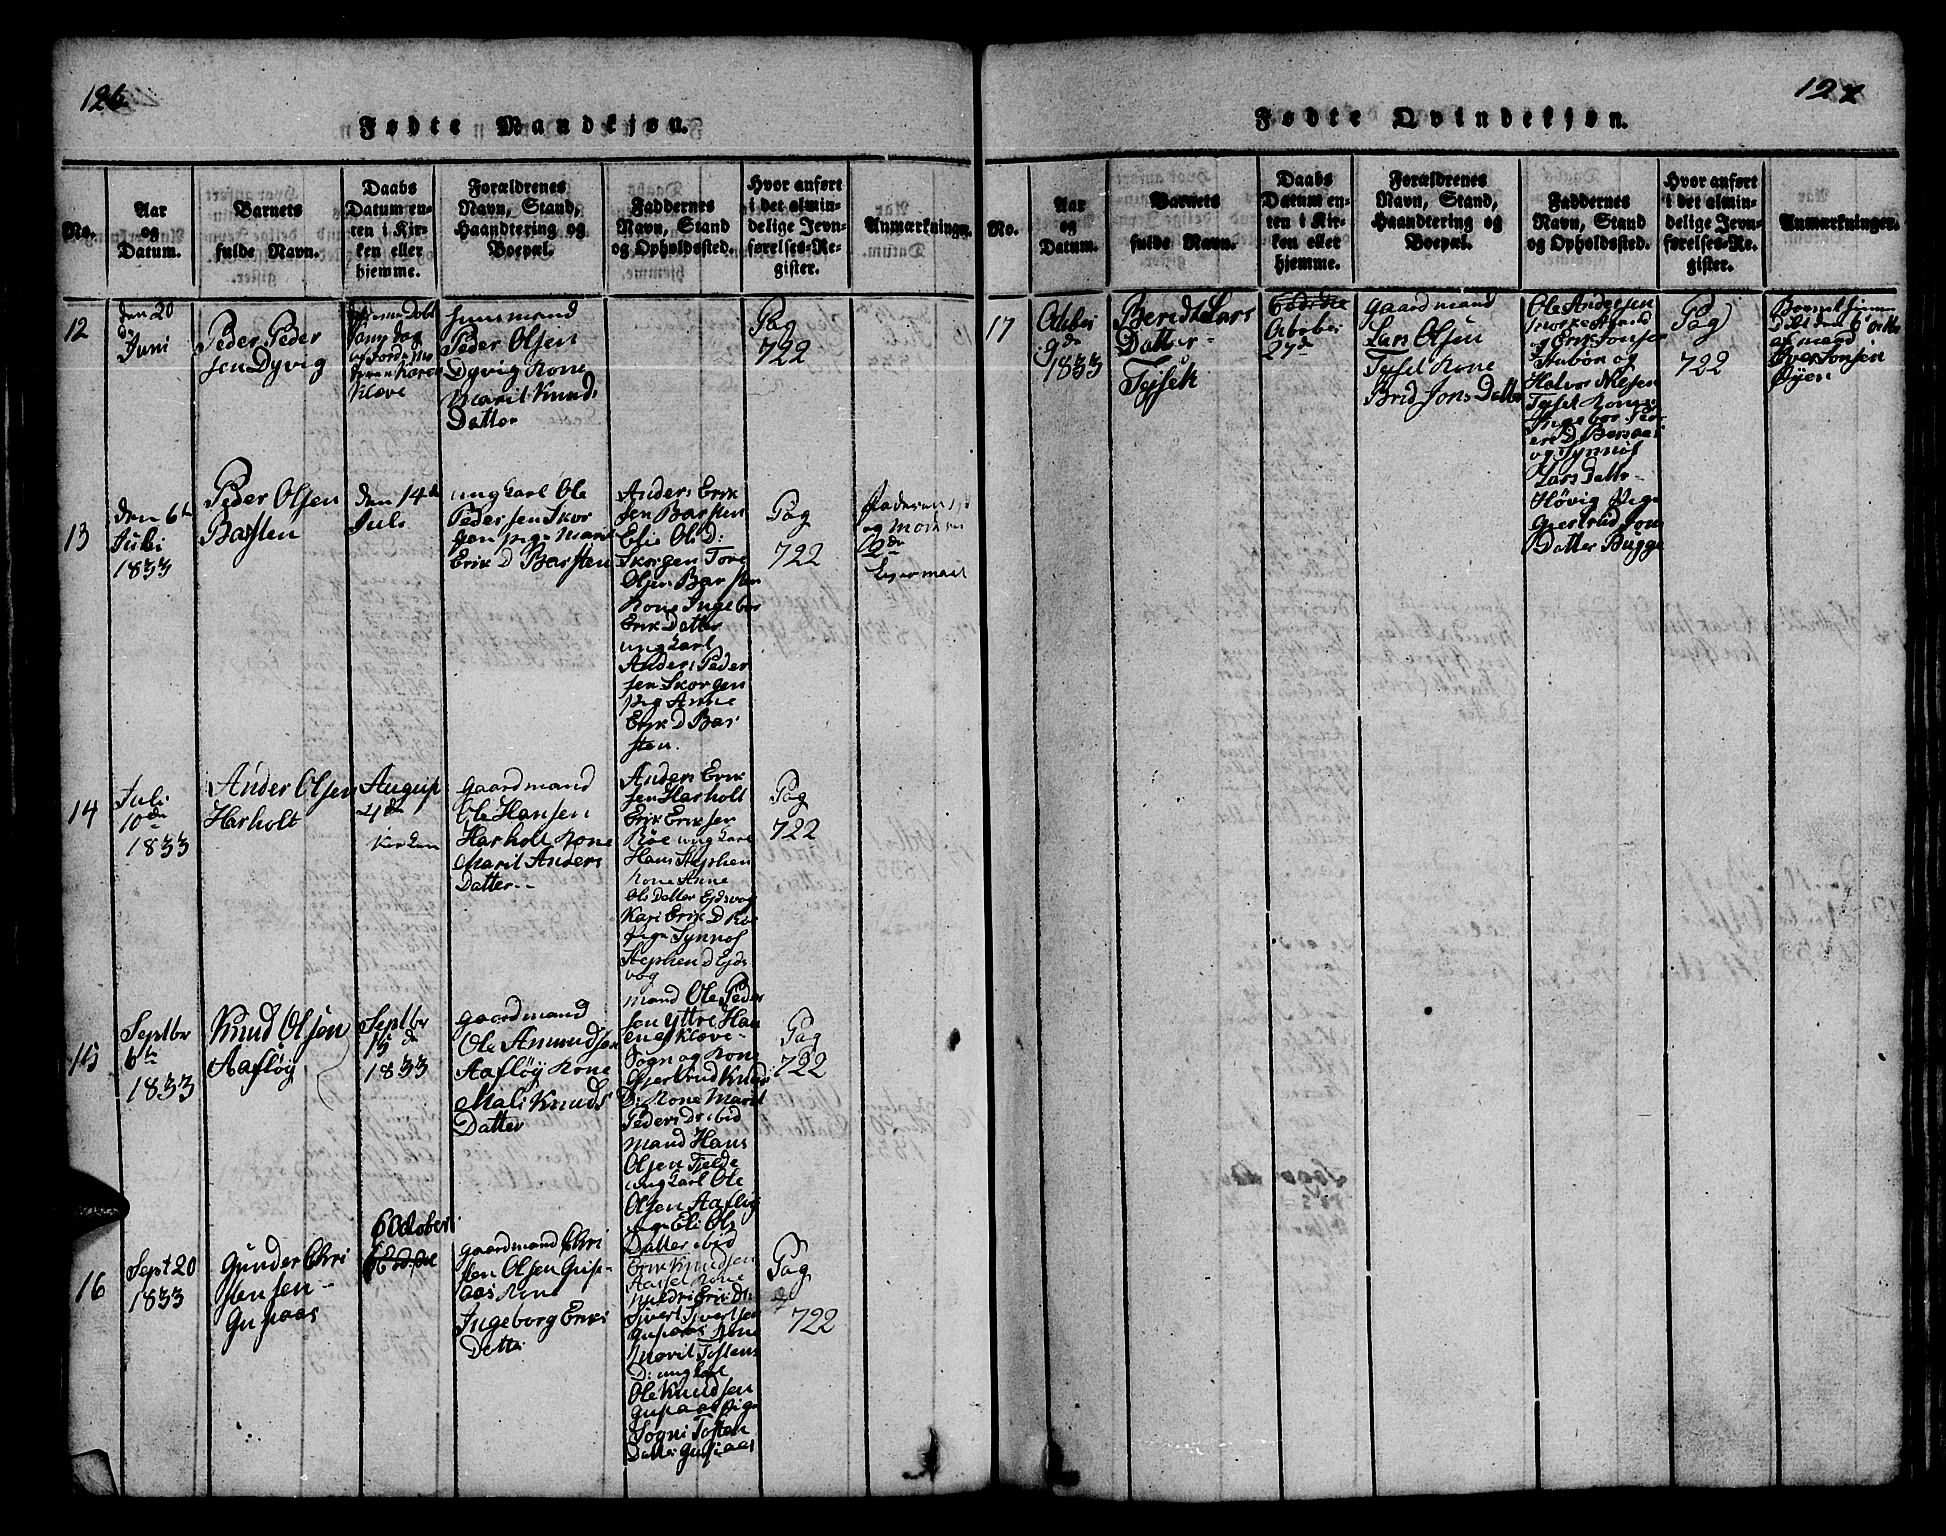 126.
Fødte Mandkjøn.
No.
Aar
og
Datum.
Barnets
fulde Navn.
Daabs
Datum en-
ten i Kir-
ken eller
hjemme.
Forældrenes
Navn, Stand,
Haandtering og
Boepæl.
Faddernes
Navn, Stand
og Opholdssted.
Hvor anført
i det almin-
delige Jevn-
førelses-Re-
gister.
Anmærkninger.
12
den 20
Juni
Peder Peder
sen Dyvig
hjemme Døbt
Klæve
huusmand
Peder Olsen
Dyvig Kone
Marit Knuds
Datter
Pag
722
13
den 6te
Juli
1833
Peder Olsen
Barsten
den 14de
Juli
ungkarl Ole
Pedersen Skor
gen pige Marit
Erik D Barsten
Anders Erik
sen Barsten
Eli Ols D:
Skorgen Tore
Olsen Barsten
Kone Ingebor
Erik Datter
ungkarl
Anders Peder
sen Skorgen
pig Anne
Erik D Bar
sten.
Pag
722
Faderens
og Moderen
2de
Leiermaal
14
Juli
10de
1833
Ander Olsen
Harholt
August
4de
kirken
gaardmand
Ole Hansen
Harholt Kone
Marit Anders
Datter -
Anders Erik
sen Harholt
Erik Eriksen
Röe ungkarl
Hans Stephen
Kone Anne
Ols Datter Ejdsvog
Kari Erik D Röe
pige Synnøf
Stephen D Ejds
vog
Pag
722
15
Septbr
6te
1833
Knud Olsen
Aafløy
Septbr
15de
1833
gaardmand
Ole Amundsen
Aafløy Kone
Mali Knuds
Datter
mand Ole Peder
sen Yttre Hau
en af Klæve
Sogn og Kone
Gjertrud Knuds
D: Kone Marit
Peders D: ibid
mand Hans
Olsen Fjelde
ungkarl Ole
Olsen Aafløy
pige Eli Ols
Datter ibid
Pag
722
16
Sept 20
1833
Gunder Chri
stensen -
Gusiaas
6 October
gaardmand Chri
sten Olsen Gusi-
aas Kone
Ingeborg Eriks
Datter
Erik Knudsen
Aasset Kone
Erik D:
Sivert Sivertsen
Gusiaas Kone
Marit Tostens
D: ungkarl
Ole Knudsen
Gusiaas pige
Sogni Tosten
Datter Gusiaas
Pag
722
Fødte Qvindekjøn.
No.
Aar
og
Datum.
Barnets
fulde Navn.
Daabs
Datum en-
ten i Kir-
ken eller
hjemme.
Forældrenes
Navn, Stand,
Haandtering og
Boepæl.
Faddernes
Navn, Stand
og Opholdssted.
Hvor anført
i det almin-
delige Jevn-
førelses-Re-
gister.
Anmærkninger.
17
9de
1833
Beridt Lars
Datter -
27de
gaardmand
Lars Olsen
Kone
Brid Jons Datter
Ole Andersen
og Erik Jonsen
og
Halvor Nilsen
Ingebor Peder
D Borsaas
og Synnøf
Lars Datter -
Høvig Pige
Gjertrud Jons
Datter Bugge
Pag
722
af mand
Iver Jonsen
Øyen